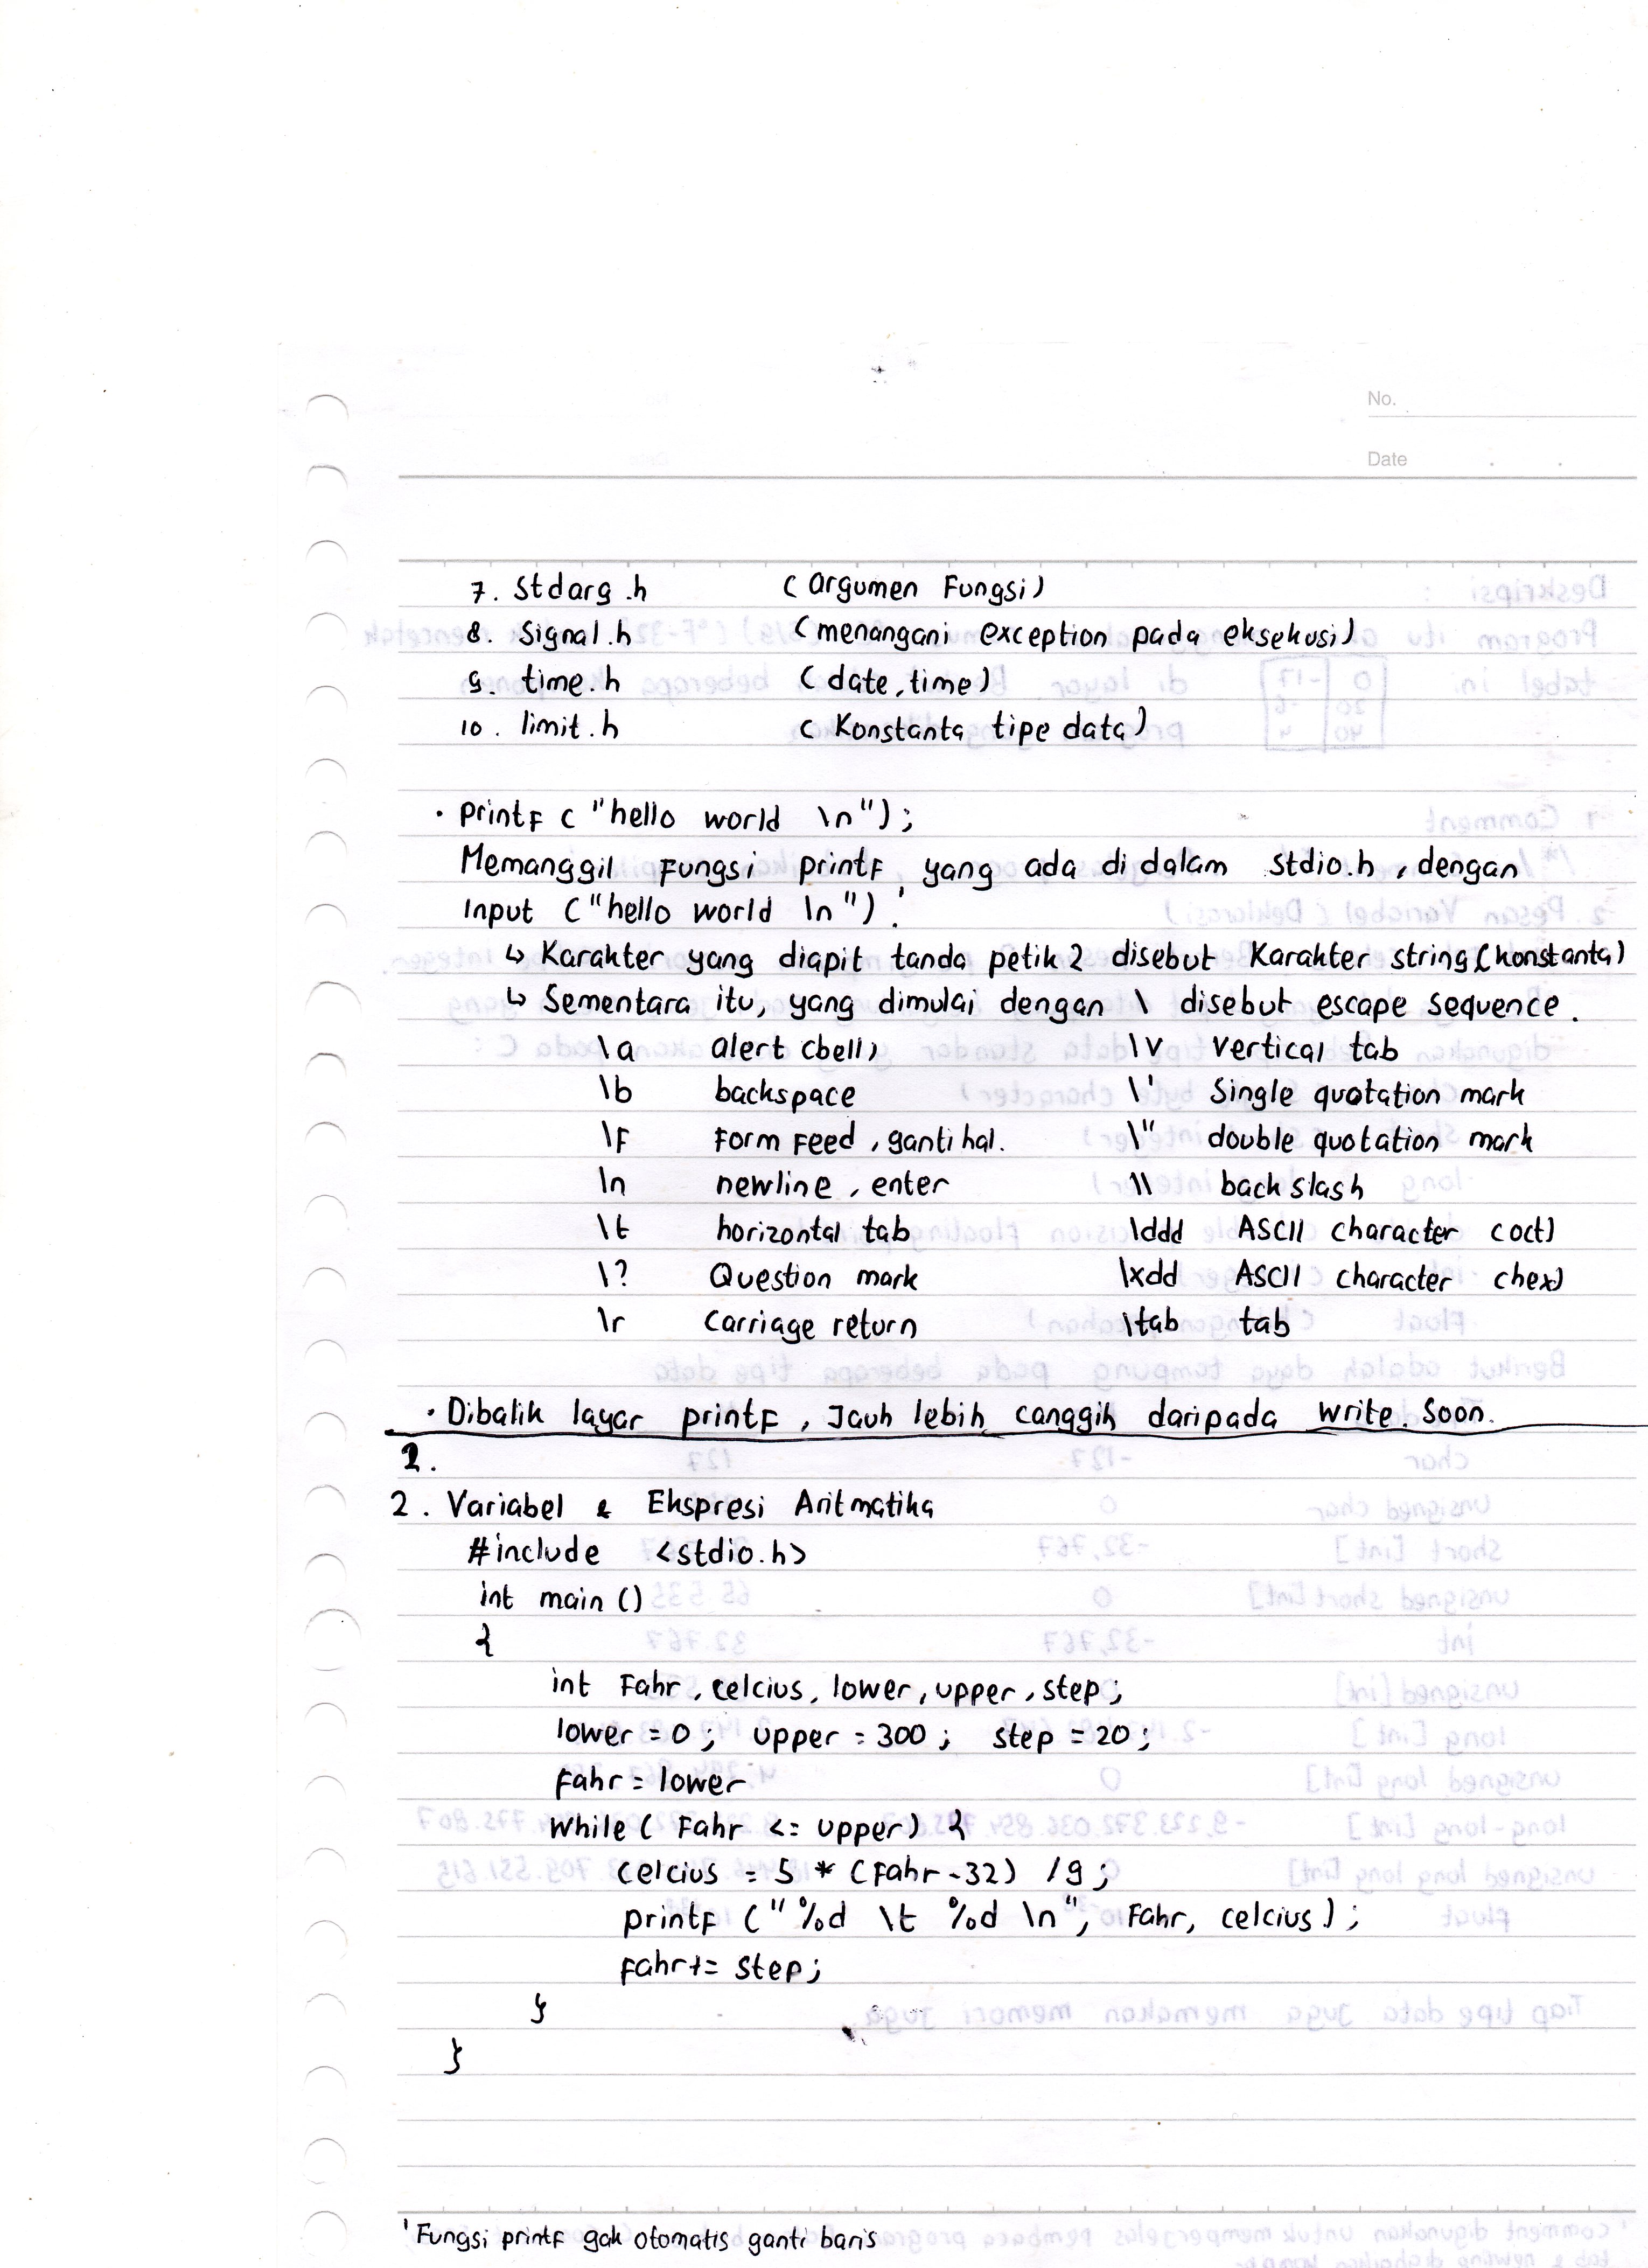 No.
Date
7. Stdarg.h (argumen Fungsi)
8. Signal.h (menangani exception pada eksekusi)
9. time.h (date, time)
10. limit.h (Konstanta tipe data)
• printf ("hello world \n");
Memanggil fungsi printf yang ada di dalam stdio.h, dengan
Input ("hello world \n").¹
↳ Karakter yang diapit tanda petik 2 disebut Karakter string (konstanta)
↳ Sementara itu, yang dimulai dengan \ disebut escape sequence.
\a alert (bell) \v vertical tab
\b backspace \' Single quotation mark
\f Form Feed, ganti hal. \" double quotation mark
\n newline, enter \\ backslash
\t horizontal tab \ddd ASCII character (oct)
\? Question mark \xdd ASCII character (hex)
\r Carriage return \tab tab
• Dibalik layar printf, Jauh lebih canggih daripada write. Soon.
2.
2. Variabel & Ekspresi Aritmatika
#include <stdio.h>
int main ()
{
int Fahr, celcius, lower, upper, step;
lower = 0; upper = 300; step = 20;
Fahr = lower
while ( Fahr <= upper) {
celcius = 5 * (Fahr-32) /9;
printf ("%d \t %d \n", Fahr, celcius);
fahr+= step;
}
}
¹ Fungsi printf gak otomatis ganti baris